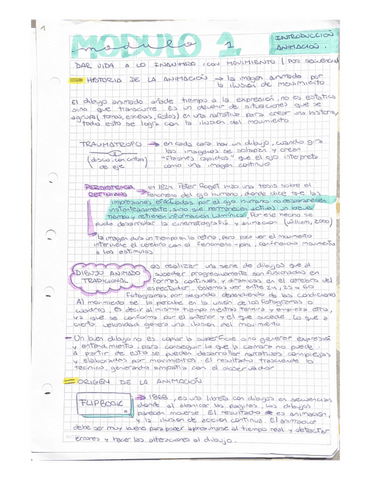 1
MODULO 1
modulo 1
INTRODUCCIÓN
ANIMACIÓN.
DAR VIDA A LO INANIMADO CON MOVIMIENTO / POR SECUENCIA
HISTORIA DE LA ANIMACIÓN → la imagen animada por
la ilusión de movimiento
El dibujo animado añade tiempo a la expresión, no es estático
sino que transcurre. Es un devenir de situaciones que se
agrupa (tomas, escenas, ) en una narrativa para crear una historia,
todo esto se logra con la ilusión del movimiento.
TRAUMATROPO → en cada cara hay un dibujo, cuando gira
las imágenes se solapan y crean
(disco con cortes) "Flashes rápidos" que el ojo interpreta
de eje como una imagen continua
PERSISTENCIA → en 1824 Peter Roget hizo una tesis sobre el
RETINIANA fenómeno del ojo humano, donde dice que las
impresiones efectuadas por el ojo humano no desaparecen
instantáneamente, sino que permanecen un
tiempo y retienen información lumínica. Por ese motivo se
pudo desarrollar la cinematografía y animación (William, 2000)
→ la imagen dura un tiempo en la retina, para poder ver el movimiento
interviene el cerebro con el Fenómeno phi, confiriendo movimiento
a los estímulos
DIBUJO ANIMADO → es realizar una serie de dibujos que al
TRADICIONAL suceder progresivamente son fusionados en
forma continua y dinámicas en el cerebro del
espectador. Solemos ver entre 24, 25 o 30
Fotogramas por segundo dependiendo de las condiciones
Al movimiento se lo percibe en la unión de los fotogramas o
cuadros. Es decir al mismo tiempo mientras termina y empieza otra,
vez que se conforma por el anterior y el que sucede. Lo que a
cierta velocidad genera una ilusión del movimiento
- Un buen dibujo no es copiar la superficie sino generar expresión
y entendimiento, para conseguir lo que la cámara no puede
A partir de esto se pueden desarrollar narrativas complejas
y elaboradas por movimientos. El resultado trasciende lo
técnico, generando simpatía con el observador
ORIGEN DE LA ANIMACIÓN
FLIPBOOK → 1868, es una libreta con dibujos en secuencias
donde al avanzar las páginas, los dibujos
parecen moverse. El resultado es animación,
y la ilusión de acción continua. El animador
debe ser muy bueno para poder aproximarse al tiempo real y detectar
errores y hacer las alteraciones al dibujo.